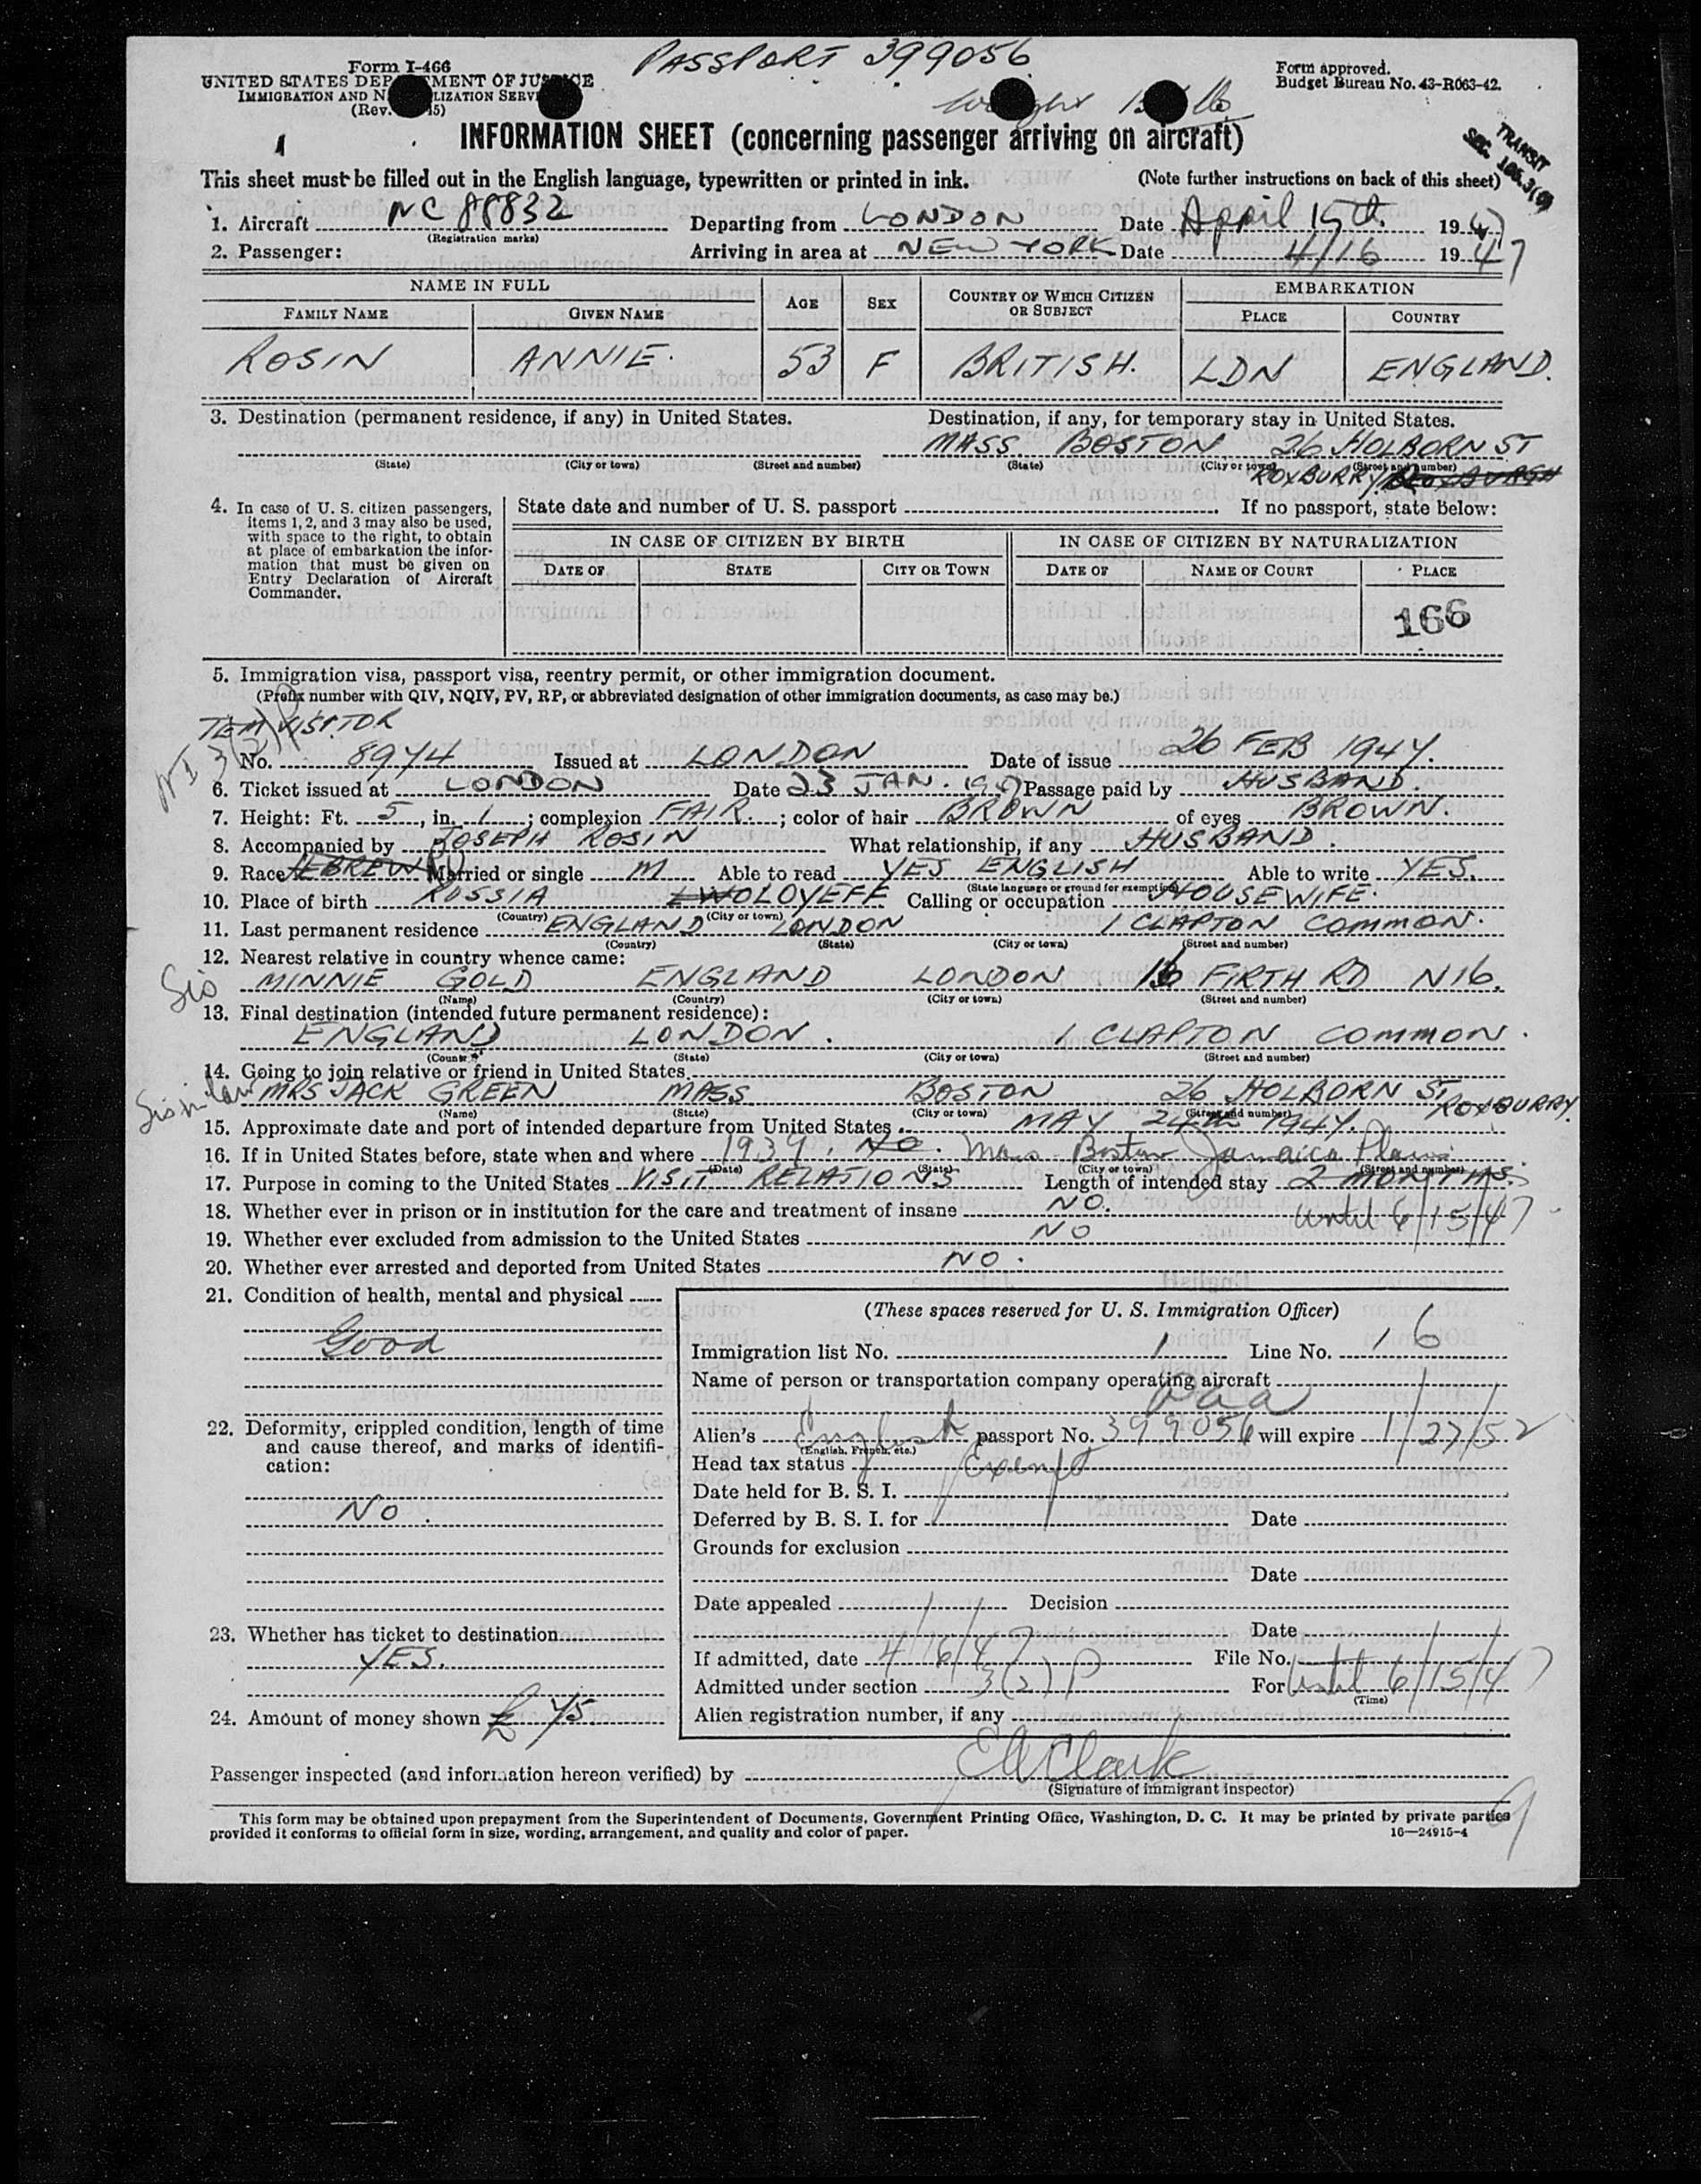 PASSPORT 399056
Form I-466
UNITED STATES DEP MENT OF JUS CE
IMMIGRATION AND N LIZATION SERV
(Rev. 45)
Form approved.
Budget Bureau No. 43-R063-42.
INFORMATION SHEET (concerning passenger arriving on aircraft)
TRANSIT
SEC.
This sheet must be filled out in the English language, typewritten or printed in ink. (Note further instructions on back of this sheet)
1. Aircraft NC 88832 Departing from LONDON Date April 15th 1947
(Registration marks)
2. Passenger: Arriving in area at NEW YORK Date 4/16 1947
NAME IN FULL AGE SEX COUNTRY OF WHICH CITIZEN OR SUBJECT EMBARKATION
FAMILY NAME GIVEN NAME PLACE COUNTRY
ROSIN ANNIE. 53 F BRITISH. LDN ENGLAND.
3. Destination (permanent residence, if any) in United States. Destination, if any, for temporary stay in United States.
MASS. BOSTON 26 HOLBORN ST
(State) (City or town) (Street and number) (State) (City or town) (Street and number)
ROXBURRY
4. In case of U. S. citizen passengers, items 1, 2, and 3 may also be used, with space to the right, to obtain at place of embarkation the information that must be given on Entry Declaration of Aircraft Commander.
State date and number of U. S. passport If no passport, state below:
IN CASE OF CITIZEN BY BIRTH IN CASE OF CITIZEN BY NATURALIZATION
DATE OF STATE CITY OR TOWN DATE OF NAME OF COURT PLACE
166
5. Immigration visa, passport visa, reentry permit, or other immigration document.
(Prefix number with QIV, NQIV, PV, RP, or abbreviated designation of other immigration documents, as case may be.)
TEM VISITOR
No. 8974 Issued at LONDON Date of issue 26 FEB 1947.
6. Ticket issued at LONDON Date 23 JAN. 1947 Passage paid by HUSBAND.
7. Height: Ft. 5, in. 1; complexion FAIR.; color of hair BROWN of eyes BROWN.
8. Accompanied by JOSEPH ROSIN What relationship, if any HUSBAND.
9. Race HEBREW Married or single M Able to read YES ENGLISH Able to write YES.
(State language or ground for exemption)
10. Place of birth RUSSIA WOLOYEFF Calling or occupation HOUSEWIFE.
(Country) (City or town)
11. Last permanent residence ENGLAND LONDON 1 CLAPTON COMMON.
(Country) (State) (City or town) (Street and number)
12. Nearest relative in country whence came:
Sis MINNIE GOLD ENGLAND LONDON 16 FIRTH RD N16.
(Name) (Country) (City or town) (Street and number)
13. Final destination (intended future permanent residence):
ENGLAND LONDON. 1 CLAPTON COMMON.
(Country) (State) (City or town) (Street and number)
14. Going to join relative or friend in United States
Sis in law MRS JACK GREEN MASS BOSTON 26 HOLBORN ST ROXBURRY
(Name) (State) (City or town) (Street and number)
15. Approximate date and port of intended departure from United States MAY 24th 1947.
16. If in United States before, state when and where 1939. NO. Mass Boston Jamaica Plains
(Date) (State) (City or town) (Street and number)
17. Purpose in coming to the United States VISIT RELATIONS Length of intended stay 2 MONTHS.
18. Whether ever in prison or in institution for the care and treatment of insane NO. until 6/15/47
19. Whether ever excluded from admission to the United States NO
20. Whether ever arrested and deported from United States NO.
21. Condition of health, mental and physical
Good
22. Deformity, crippled condition, length of time and cause thereof, and marks of identification:
No.
23. Whether has ticket to destination
YES.
24. Amount of money shown £ 45
(These spaces reserved for U. S. Immigration Officer)
Immigration list No. 1 Line No. 16
Name of person or transportation company operating aircraft
Paa
Alien's English passport No. 399056 will expire 1/27/52
(English, French, etc.)
Head tax status Exempt
Date held for B. S. I.
Deferred by B. S. I. for Date
Grounds for exclusion
Date
Date appealed Decision
Date
If admitted, date 4/16/47 File No.
Admitted under section 3(2)P For Until 6/15/47
(Time)
Alien registration number, if any
Passenger inspected (and information hereon verified) by E A Clark
(Signature of immigrant inspector)
This form may be obtained upon prepayment from the Superintendent of Documents, Government Printing Office, Washington, D. C. It may be printed by private parties
provided it conforms to official form in size, wording, arrangement, and quality and color of paper. 16—24915-4